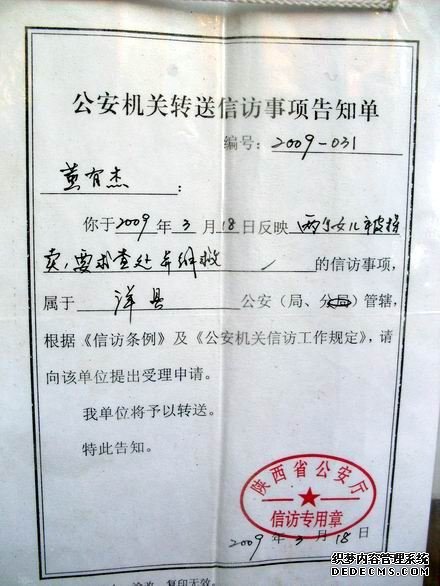 公安机关转送信访事项告知单
编号：2009-031
董有杰：
你于2009年3月18日反映两个女儿被拐
卖，要求查处并解救的信访事项，
属于洋县公安（局、分局）管辖，
根据《信访条例》及《公安机关信访工作规定》，请
向该单位提出受理申请。
我单位将予以转送。
特此告知。
陕西省公安厅
信访专用章
2009年3月18日
复印无效。
织梦内容管理系统
DEDECMS.COM